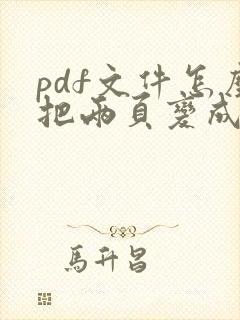 pdf文件怎麼
把兩頁變成
馬升昌